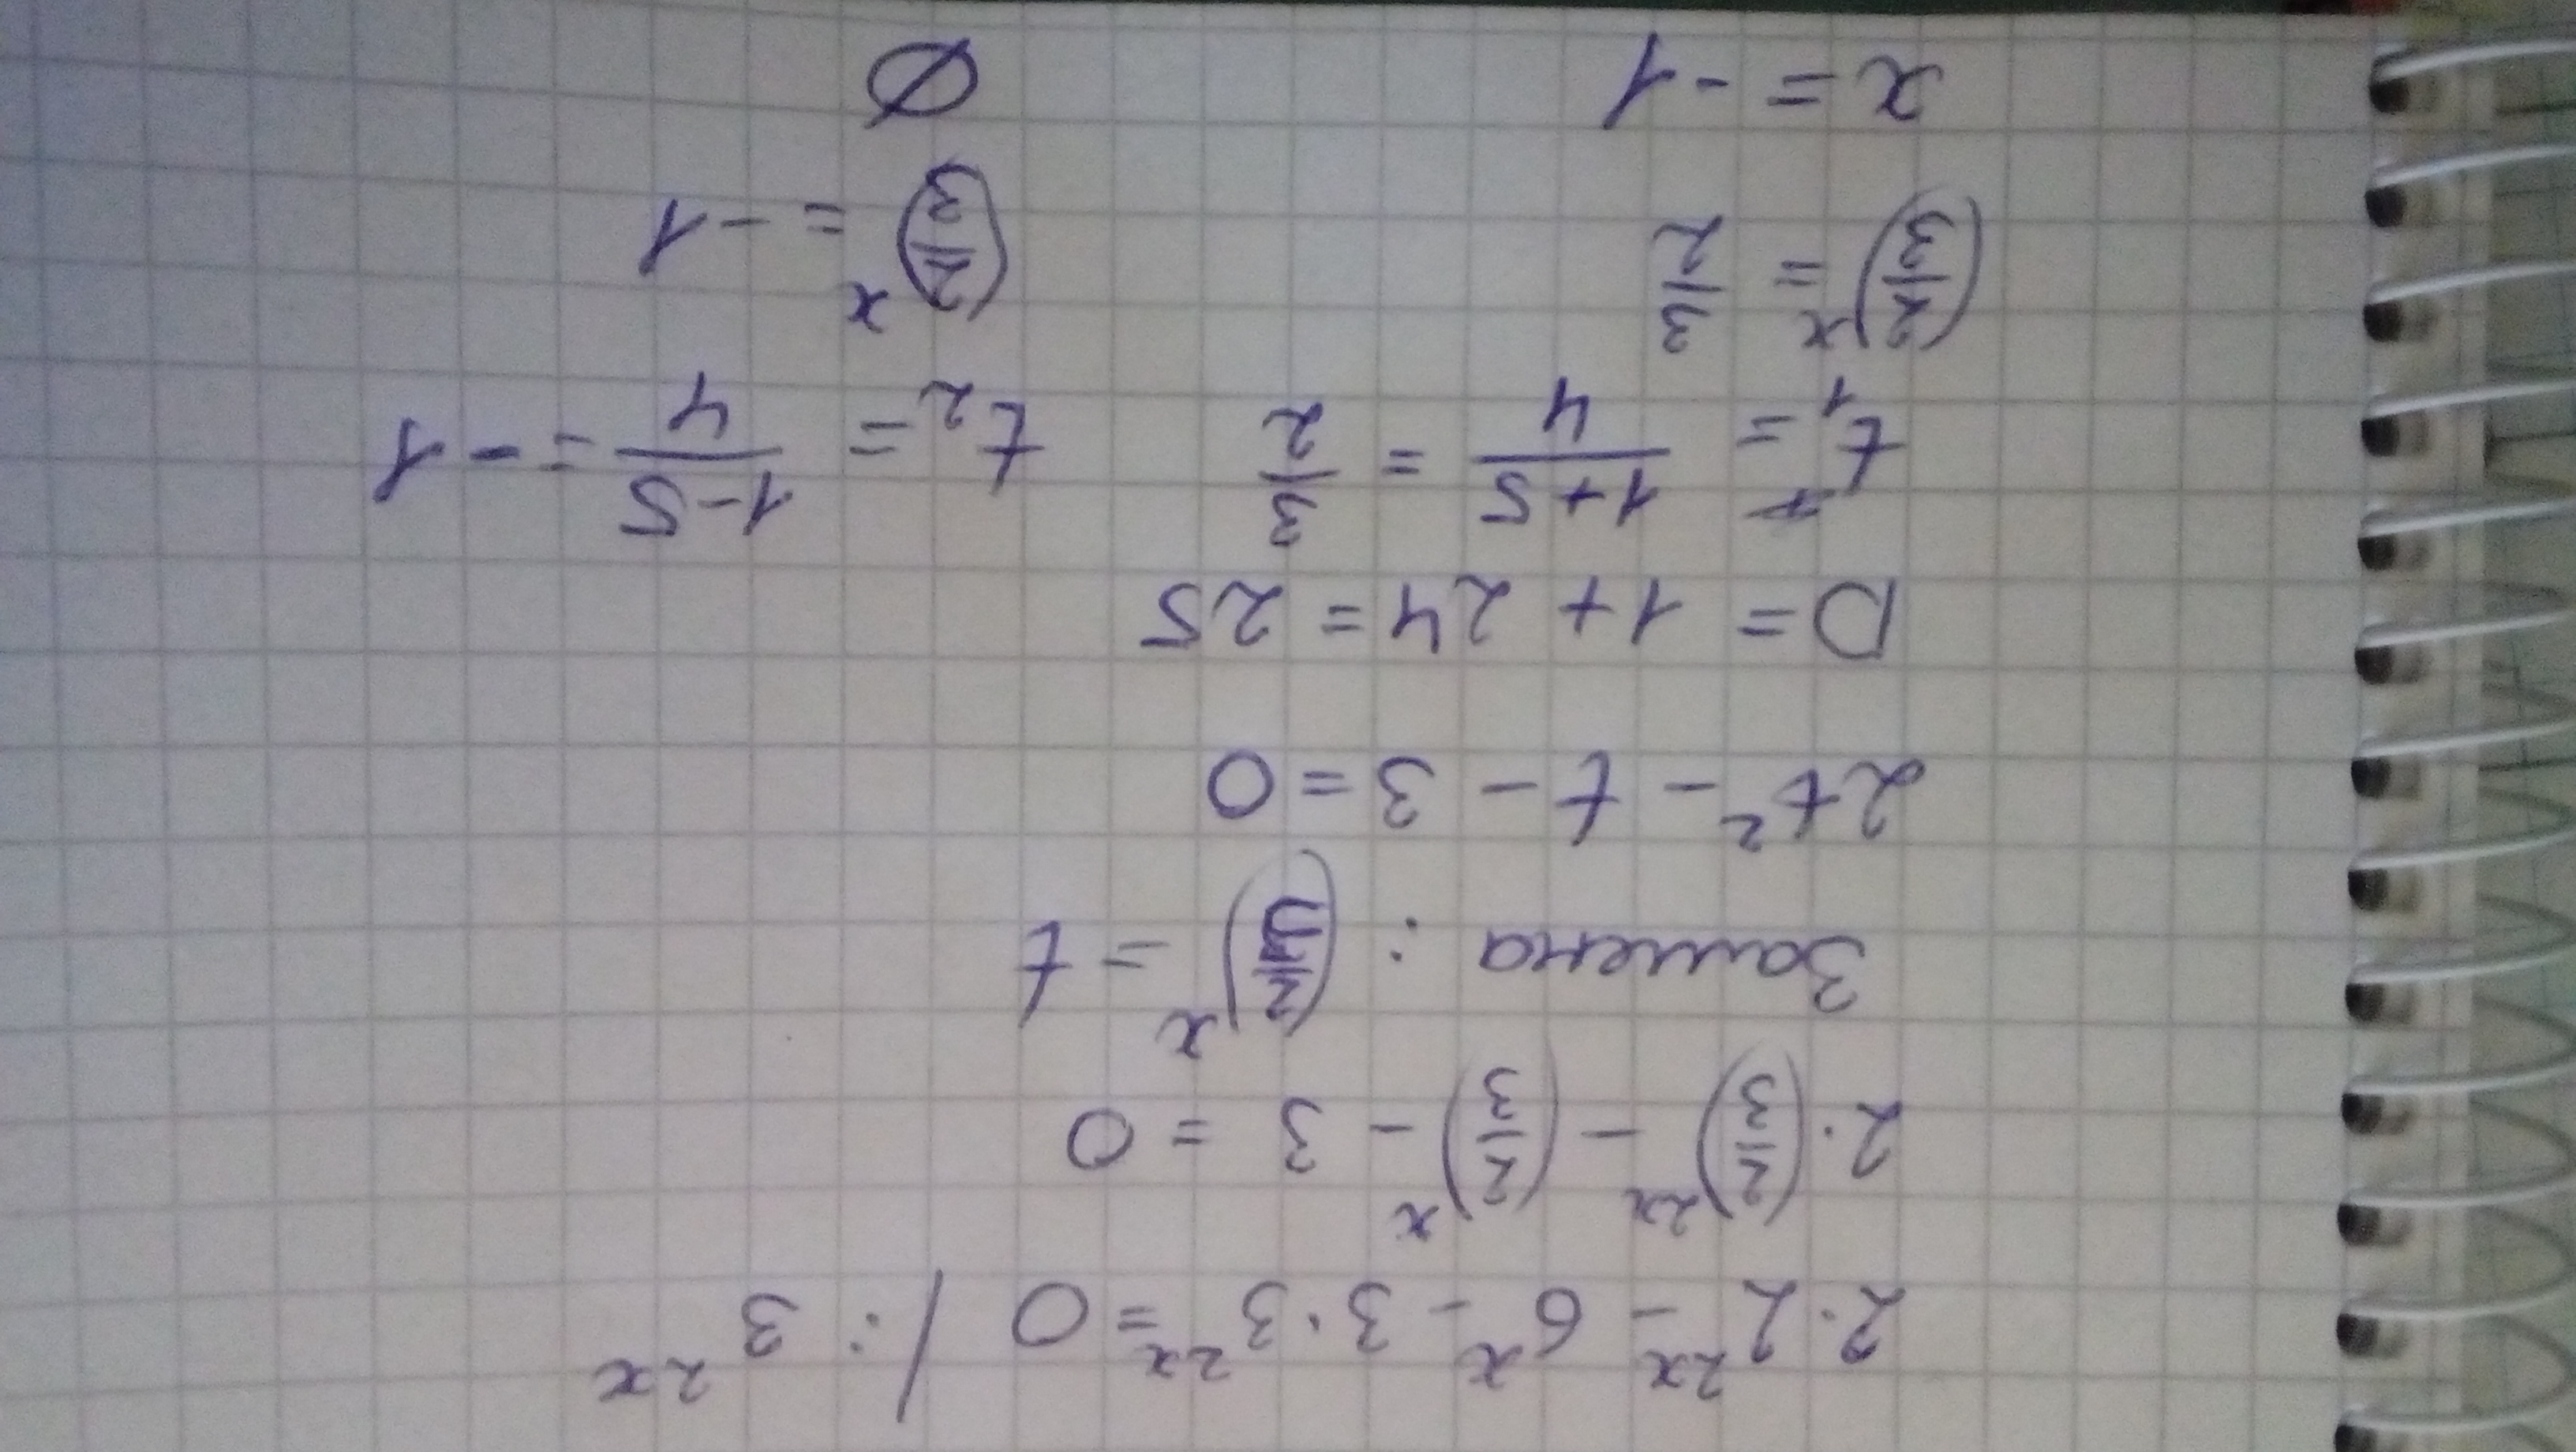 2·2^{2x} - 6^x - 3·3^{2x} = 0 / : 3^{2x}
2·(2/3)^{2x} - (2/3)^x - 3 = 0
Замена : (2/3)^x = t
2t² - t - 3 = 0
D = 1 + 24 = 25
t₁ = (1+5)/4 = 3/2    t₂ = (1-5)/4 = -1
(2/3)^x = 3/2    (2/3)^x = -1
x = -1    Ø